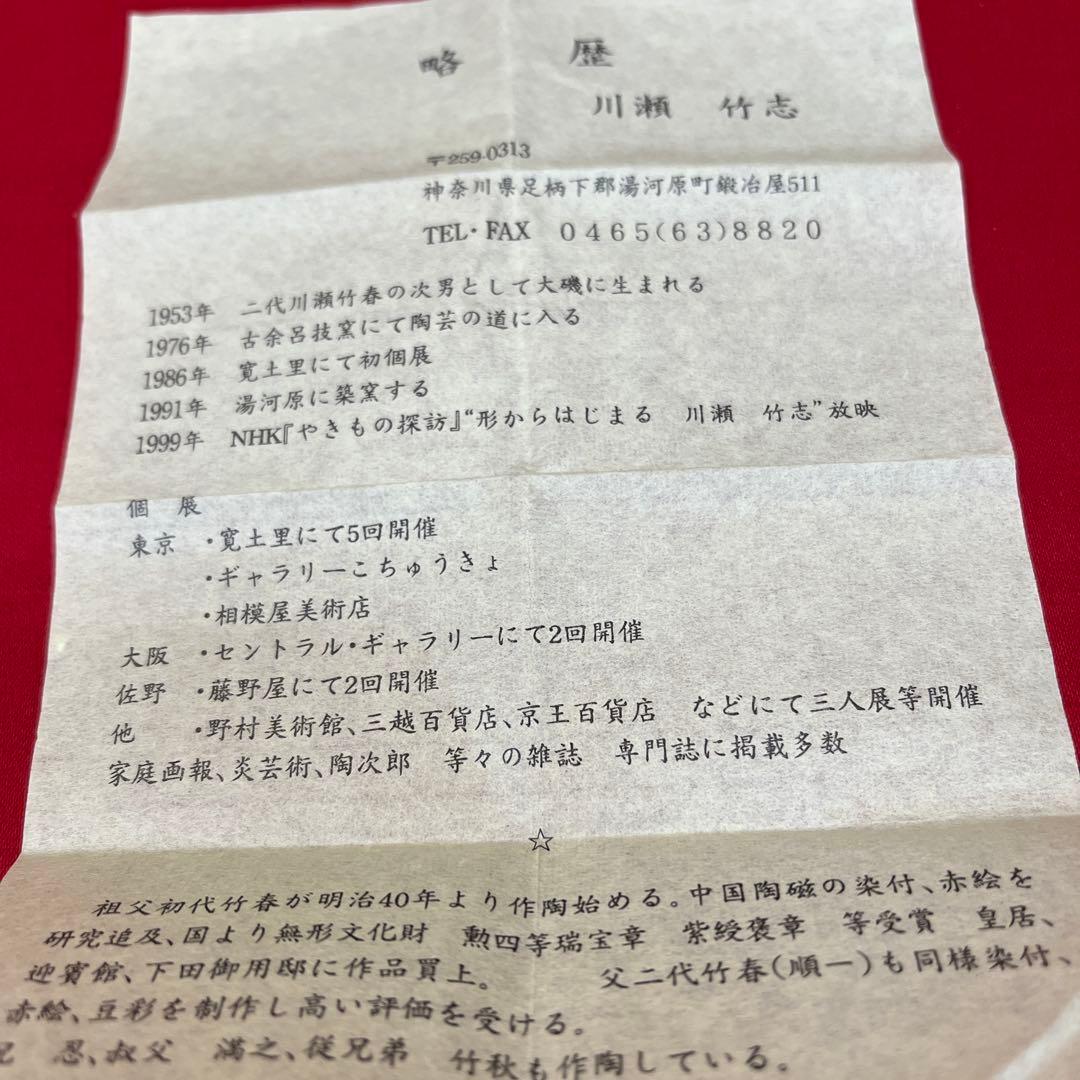 略 歴
川瀬 竹志
〒259-0313
神奈川県足柄下郡湯河原町鍛冶屋511
TEL・FAX 0465(63)8820
1953年 二代川瀬竹春の次男として大磯に生まれる
1976年 古余呂技窯にて陶芸の道に入る
1986年 寛土里にて初個展
1991年 湯河原に築窯する
1999年 NHK『やきもの探訪』“形からはじまる 川瀬 竹志”放映
個 展
東京 ・寛土里にて5回開催
・ギャラリーこちゅうきょ
・相模屋美術店
大阪 ・セントラル・ギャラリーにて2回開催
佐野 ・藤野屋にて2回開催
他 ・野村美術館、三越百貨店、京王百貨店 などにて三人展等開催
家庭画報、炎芸術、陶次郎 等々の雑誌 専門誌に掲載多数
☆
祖父初代竹春が明治40年より作陶始める。中国陶磁の染付、赤絵を
研究追及、国より無形文化財 勲四等瑞宝章 紫綬褒章 等受賞 皇居、
迎賓館、下田御用邸に作品買上。 父二代竹春(順一)も同様染付、
赤絵、豆彩を制作し高い評価を受ける。
兄 忍、叔父 満之、従兄弟 竹秋も作陶している。